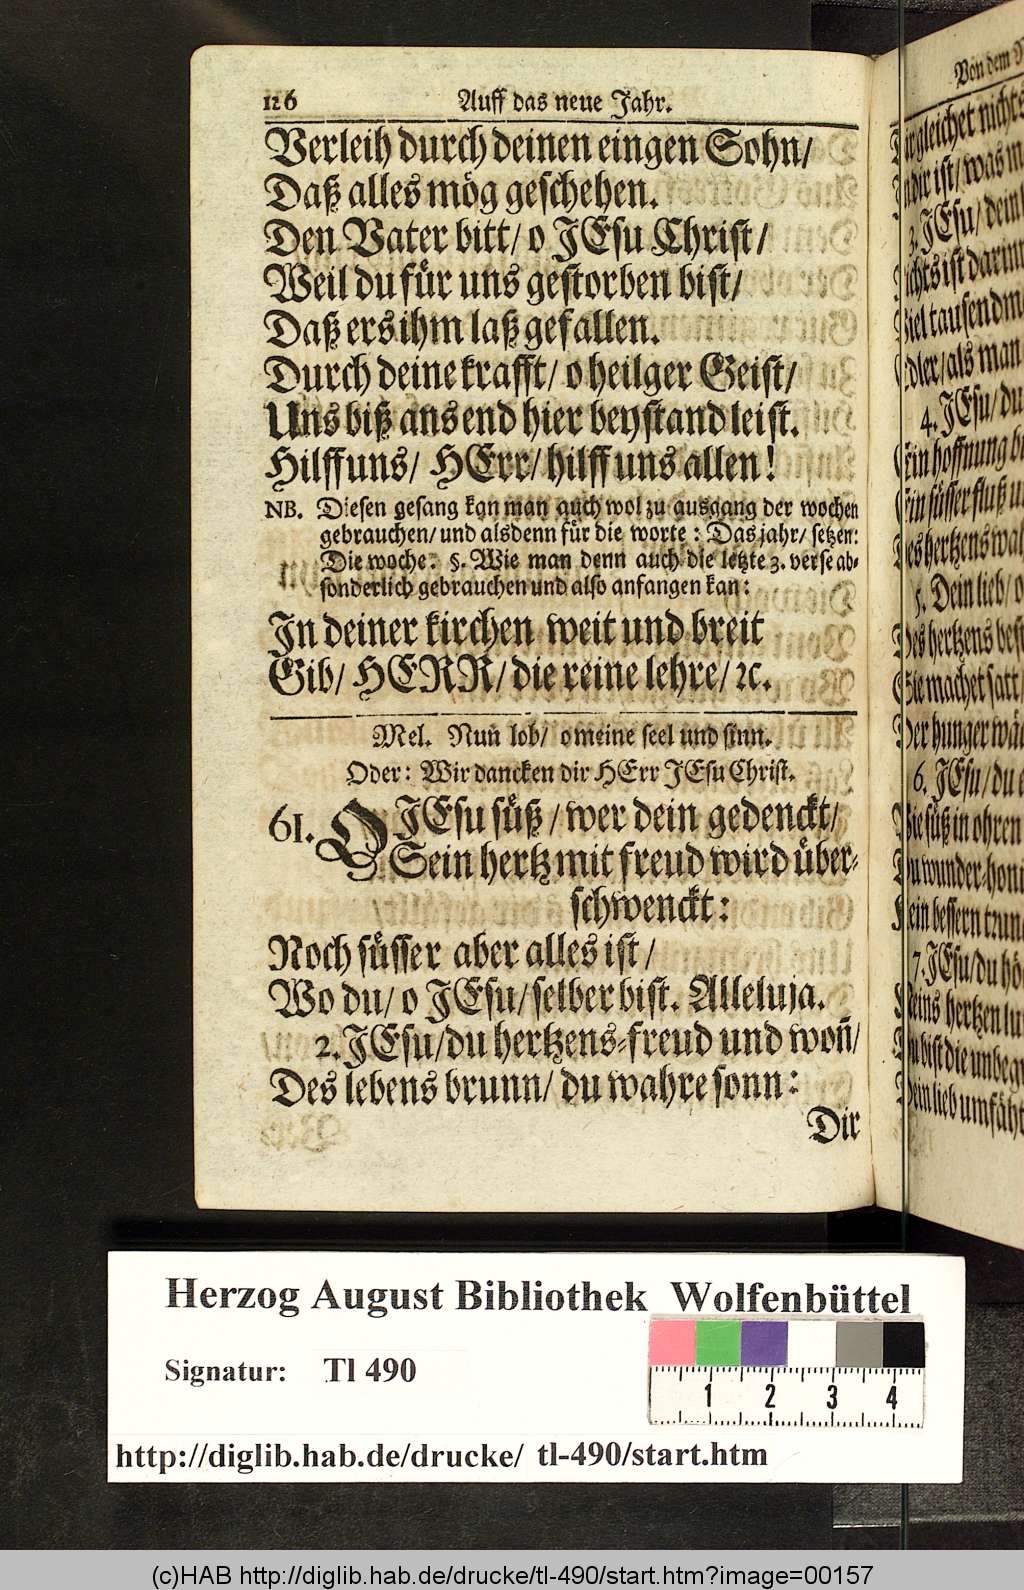 126 Auff das neue Jahr.
Verleih durch deinen eingen Sohn/
Daß alles mög geschehen.
Den Vater bitt/ o JEsu Christ/
Weil du für uns gestorben bist/
Daß ers ihm laß gefallen.
Durch deine krafft/ o heilger Geist/
Uns biß ans end hier beystand leist.
Hilff uns/ HErr/ hilff uns allen!
NB. Diesen gesang kan man auch wol zu ausgang der wochen
gebrauchen/ und alsdenn für die worte: Das jahr/ setzen:
Die woche. §. Wie man denn auch die letzte 3. verse ab-
sonderlich gebrauchen und also anfangen kan:
In deiner kirchen weit und breit
Gib/ HERR/ die reine lehre/ ꝛc.
Mel. Nun lob/ o meine seel und sinn.
Oder: Wir dancken dir HErr JEsu Christ.
61. O JEsu süß/ wer dein gedenckt/
Sein hertz mit freud wird über-
schwenckt:
Noch süsser aber alles ist/
Wo du/ o JEsu/ selber bist. Alleluja.
2. JEsu/ du hertzens-freud und woñ/
Des lebens brunn/ du wahre sonn:
Dir
Von dem
gleichet nichts
dir ist/ was
3. JEsu/ dein
ist darinn
tausendm
als man
4. JEsu/ du
hoffnung
süsser fluß
hertzens
5. Dein lieb/ o
hertzens
machet satt/
hunger
6. JEsu/ du
süß in ohren
wunder-honi
bessern trun
7. JEsu/ du hö
hertzen lu
bist die unbegr
lieb umfäht
Herzog August Bibliothek Wolfenbüttel
Signatur: Tl 490
1 2 3 4
http://diglib.hab.de/drucke/ tl-490/start.htm
(c)HAB http://diglib.hab.de/drucke/tl-490/start.htm?image=00157